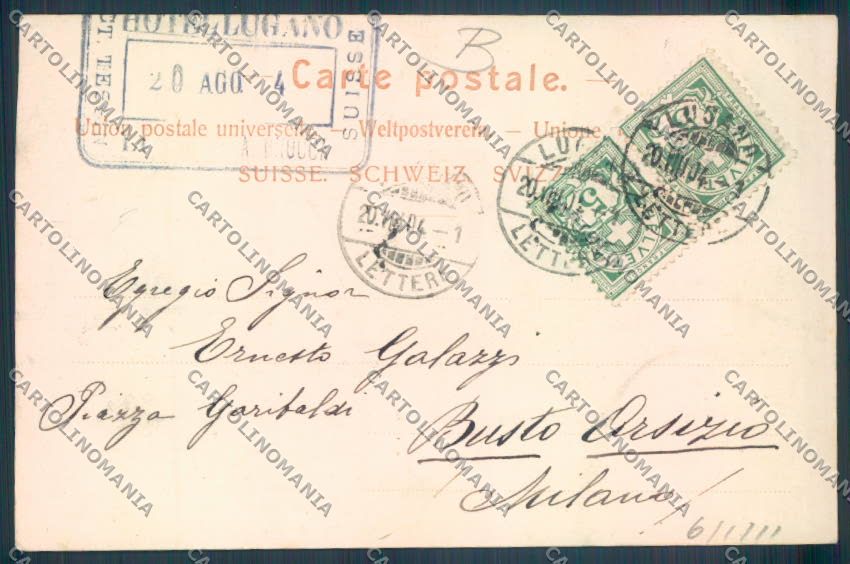 HOTEL LUGANO
20 AGO 4
ESSIUS
B
Carte postale.
Union postale universelle — Weltpostverein — Unione
SUISSE. SCHWEIZ. SVIZZ
LUG
20.VIII.04
LETTERE
20.VIII.04 – 1
LETTERE
20.VIII.04
LETTERE
5
Egregio Signor
Ernesto Galazzi
Piazza Garibaldi
Busto Arsizio
Milano
CARTOLINOMANIA